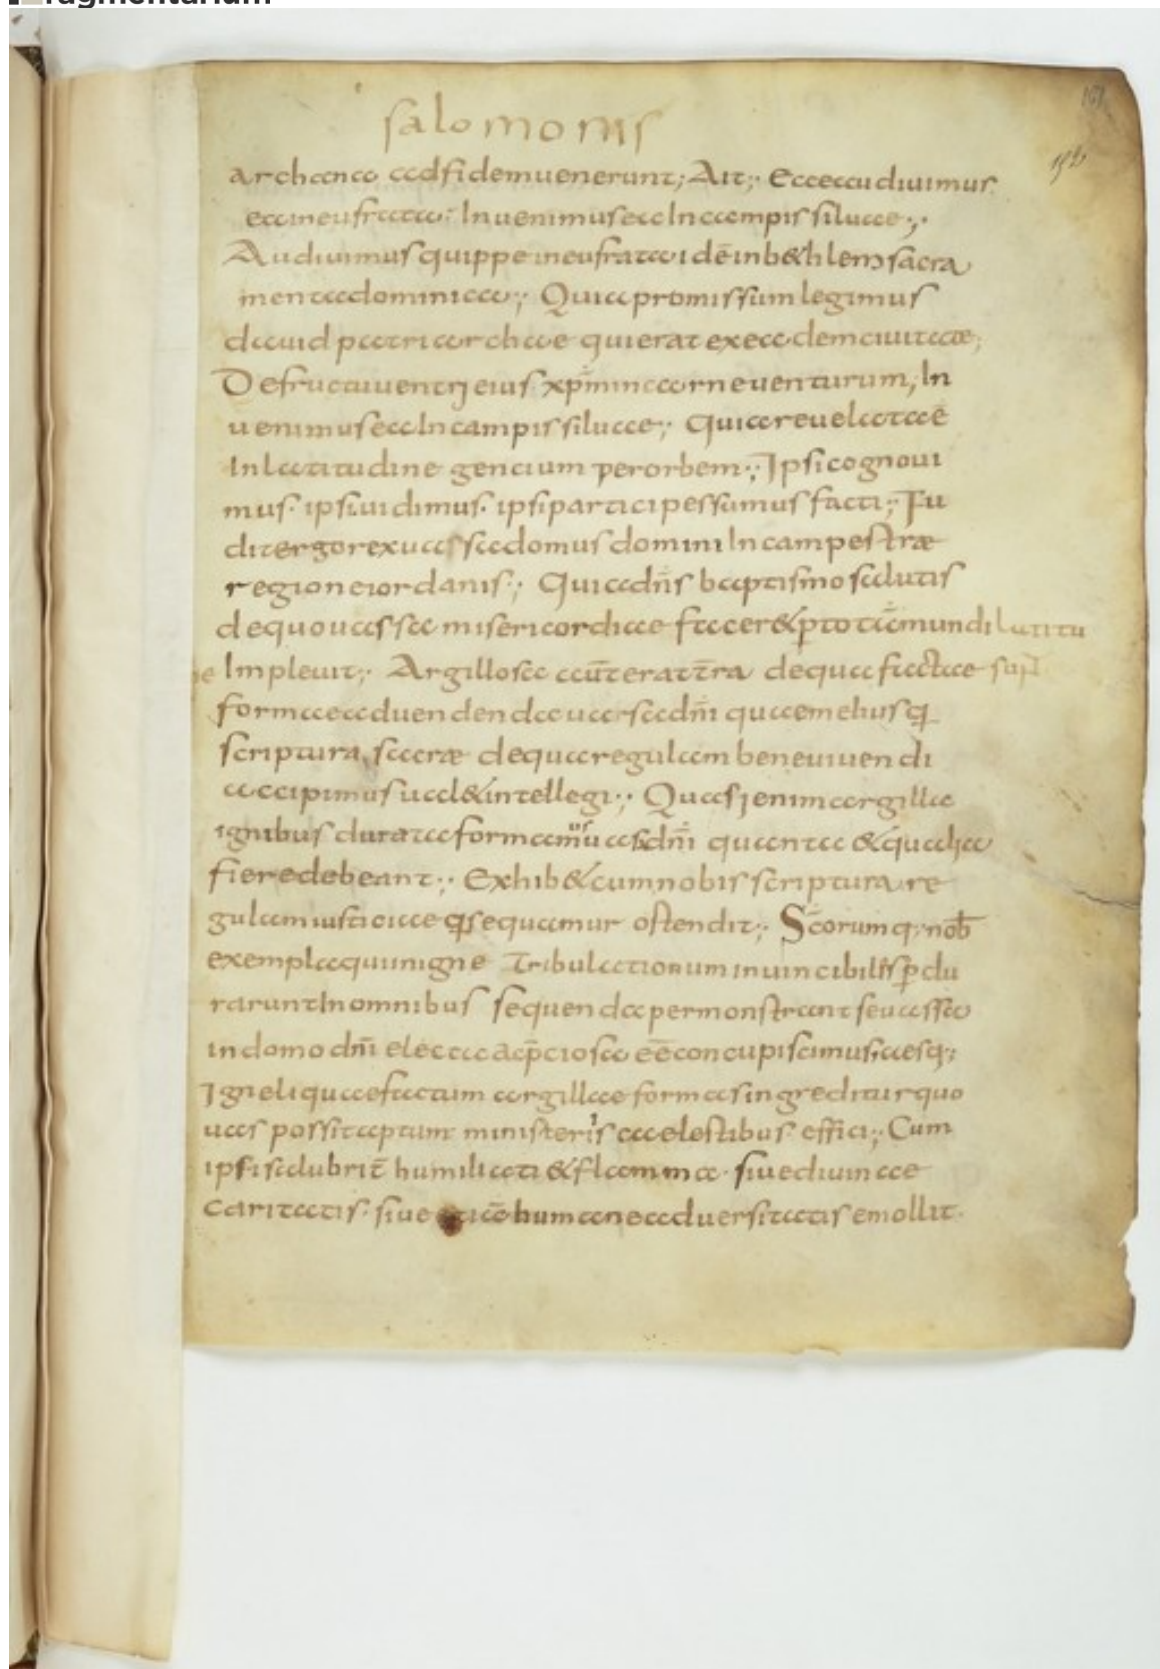 ragmentarium
salomonis
archana ad fidem uenerunt; Ait;· Ecce audiuimus
ea in eufrata· Inuenimus ea In campis siluae;·
Audiuimus quippe in eufrata idē in b&hlem sacra
menta dominica;· Quia promissum legimus
dauid patriarchae qui erat ex eadem ciuitatæ;
De fructu uentrj eius xp̄m in carne uenturum; In
uenimus ea In campis siluae;· Quia reuelata ē
In latitudine gencium per orbem;· Ipsi cognoui
mus· ipsi uidimus· ipsi participes sumus facti;· Fu
dit ergo rex uassa domus domini In campestræ
regione iordanis;· Quia dn̄s baptismo salutis
de quo uassa misericordiae facer& p totā mundi latitu
ne Impleuit;· Argillosa aūt erat t̄ra de qua factae
formae ad uendenda uassa dn̄i quae melius q
scriptura sacræ de qua regulam bene uiuendi
accipimus ual& intellegi;· Quasj enim argilla
ignibus durata formam uassa dn̄i quanta & qualia
fiere debeant;· Exhib& cum nobis scriptura re
gulam iusticiae q sequamur ostendit;· Scorum q; nob
exempla qui in igne Tribulationum inuincibilis p du
rarunt In omnibus sequenda permonstrant seu uassa
in domo dn̄i electa ac p̄ciosa eē concupiscimus;
Igne liquaefactum argillae formas ingreditur quo
uas possit aptum ministeriis caelestibus effici;· Cum
ipsi salubrit̄ humiliati & flamma· siue diuinae
caritatis· siue humane aduersitatis emollit·